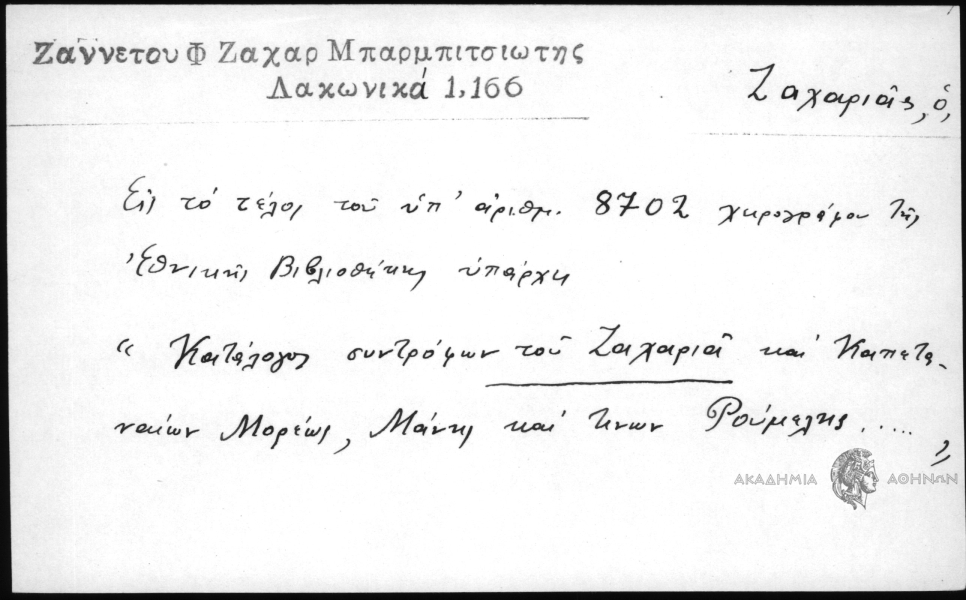 Ζαννετου Φ Ζαχαρ Μπαρμπιτσιωτης
Λακωνικά 1,166
Ζαχαριᾶς, ὁ,
Εἰς τό τέλος τοῦ ὑπ' ἀριθμ. 8702 χειρογράφου τῆς
Ἐθνικῆς Βιβλιοθήκης ὑπάρχει
“ Κατάλογος συντρόφων τοῦ Ζαχαριᾶ καί Καπετα-
ναίων Μορέως, Μάνης καί τινων Ρούμελης ..... ”
ΑΚΑΔΗΜΙΑ ΑΘΗΝΩΝ